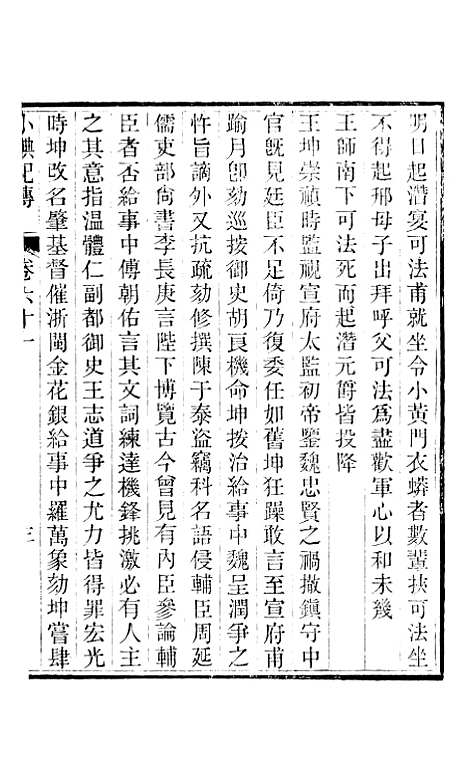 明日起潛宴可法甫就坐令小黃門衣蟒者數輩挾可法坐
不得起那母子出拜呼父可法爲盡歡軍心以和未幾
王師南下可法死而起潛元爵皆投降
王坤崇禎時監視宣府太監初帝鑒魏忠賢之禍撤鎭守中
官旣見廷臣不足倚乃復委任如舊坤狂躁敢言至宣府甫
踰月卽劾巡按御史胡良機命坤按治給事中魏呈潤爭之
忤旨謫外又抗疏劾修撰陳于泰盜竊科名語侵輔臣周延
儒吏部尙書李長庚言陛下博覽古今曾見有內臣參論輔
臣者否給事中傅朝佑言其文詞練達機鋒挑激必有人主
之其意指温體仁副都御史王志道爭之尤力皆得罪宏光
時坤改名肇基督催浙閩金花銀給事中羅萬象劾坤嘗肆
小腆紀傳 卷六十一 三